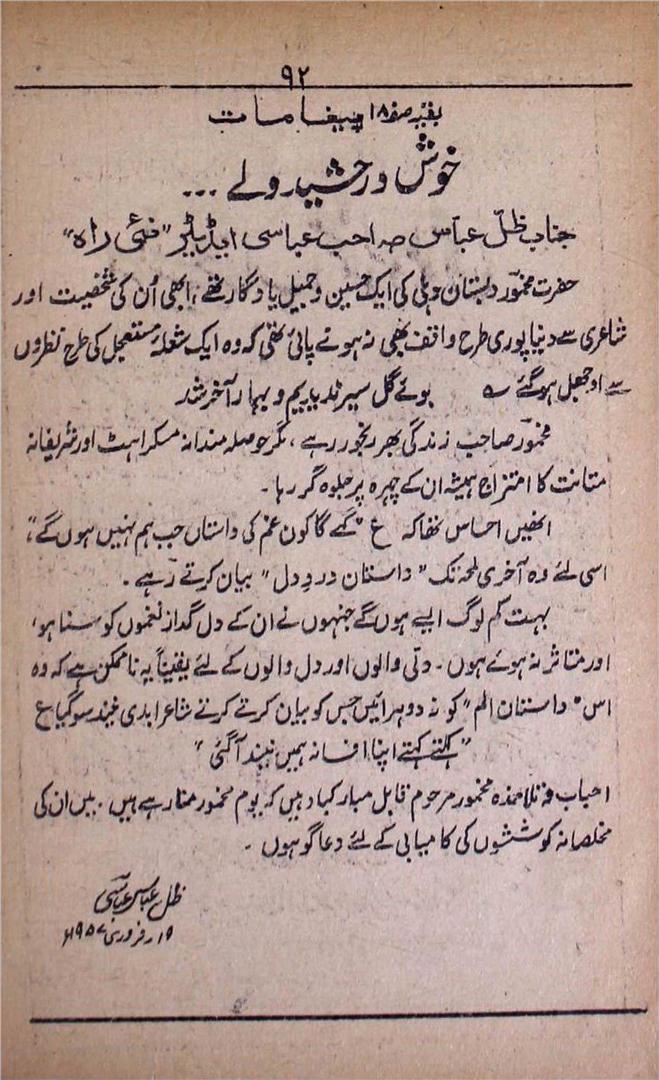 ۹۲
بقیہ صفحہ ۱۸ پیغامات
خوش درخشید ولے ...
جناب ظلّ عباس صاحب عباسی ایڈیٹر "نئی راہ"
حضرت مخمور دبستان دہلی کی ایک حسین و جمیل یادگار تھے، ابھی اُن کی شخصیت اور
شاعری سے دنیا پوری طرح واقف بھی نہ ہونے پائی تھی کہ وہ ایک شعلۂ مستعجل کی طرح نظروں
سے اوجھل ہو گئے ؎ بوئے گل سیر ندیدیم و بہار آخر شد
مخمور صاحب زندگی بھر رنجور رہے، مگر حوصلہ مندانہ مسکراہٹ اور شریفانہ
متانت کا امتزاج ہمیشہ ان کے چہرہ پر جلوہ گر رہا۔
انھیں احساس تھا کہ ع "کہے گا کون غم کی داستاں جب ہم نہیں ہوں گے"
اسی لئے وہ آخری لمحہ تک "داستان دردِ دل" بیان کرتے رہے۔
بہت کم لوگ ایسے ہوں گے جنہوں نے ان کے دل گداز نغموں کو سنا ہو،
اور متاثر نہ ہوئے ہوں۔ دلّی والوں اور دل والوں کے لئے یقیناً یہ ناممکن ہے کہ وہ
اس "داستان الم" کو نہ دوہرائیں جس کو بیان کرتے کرتے شاعر ابدی نیند سو گیا ع
"کہتے کہتے اپنا افسانہ ہمیں نیند آگئی"
احباب و تلامذہ مخمور مرحوم قابل مبارکباد ہیں کہ یوم مخمور منا رہے ہیں۔ میں ان کی
مخلصانہ کوششوں کی کامیابی کے لئے دعا گو ہوں۔
ظل عباس عباسی
۱۹ر فروری ۱۹۵۷ء